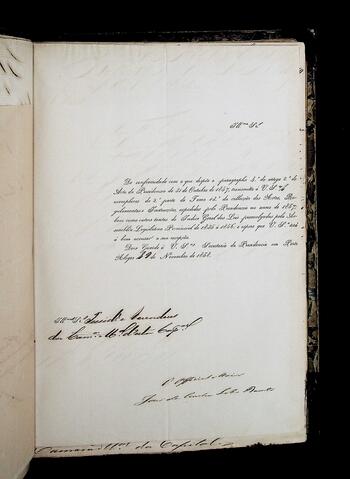 Illmo Sr.
De conformidade com o que dispõe o paragrapho 4.º do artigo 2.º do
Acto da Presidencia de 21 de Outubro de 1857, remetto á V. S.
exemplares da 2.ª parte do Tomo 12.º da collecção dos Actos,
Regulamentos e Instrucções, expedidas pela Presidencia no anno de 1857,
bem como outros tantos do Indice Geral das Leis promulgadas pela
Assembléa Legislativa Provincial de 1835 á 1856, e espero que V. S.
a bem accusar a sua recepção.
Deos Guarde á V. S. Secretaria da Presidencia em Porto
Alegre 29 de Novembro de 1858.
Illmo Sr. Presidente e Vereadores
da Cam.ª M.al desta Cap.al
O Official Maior
João da Cunha Lobo Barreto
Camara M.al da Capital